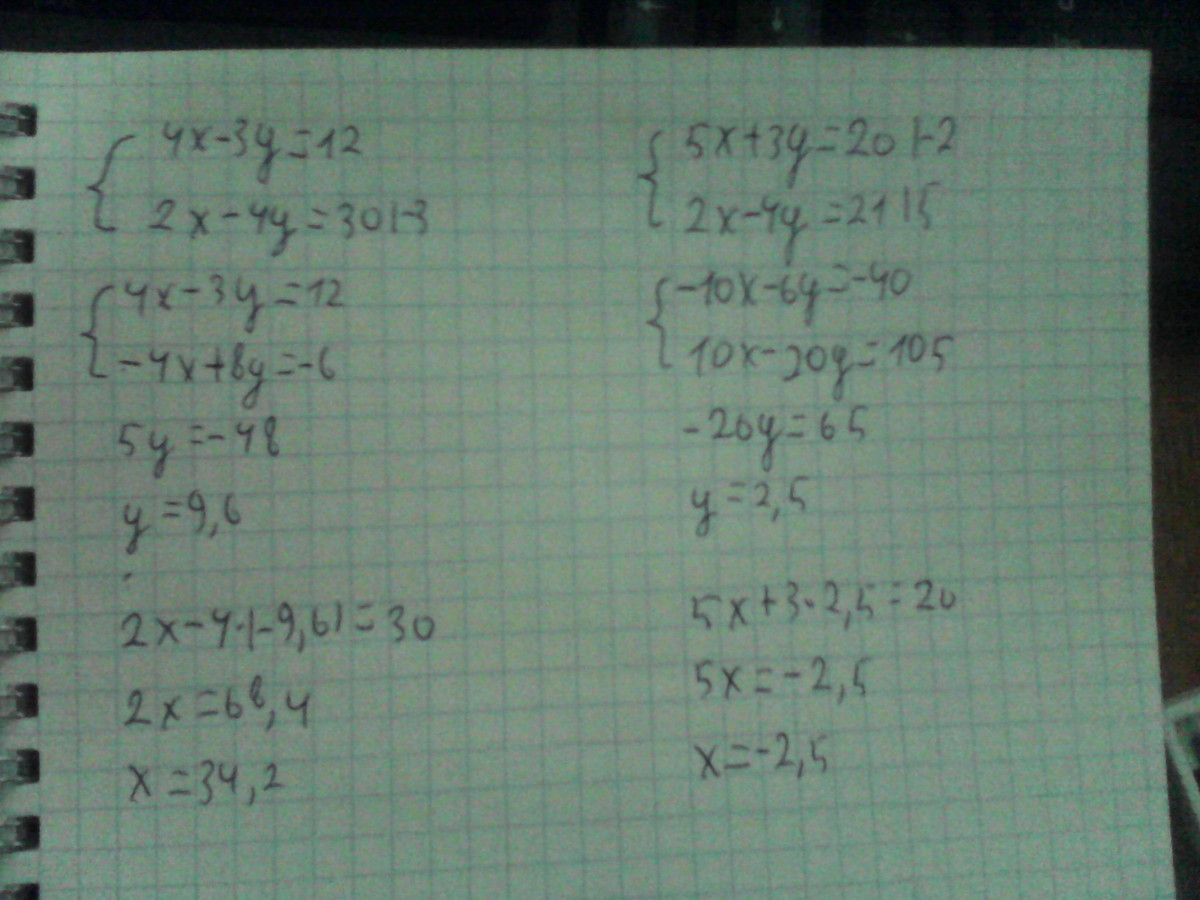 4x-3y=12
2x-4y=30|-3
4x-3y=12
-4x+8y=-6
5y=-48
y=9,6
2x-4·(-9,6)=30
2x=68,4
x=34,2
5x+3y=20 |-2
2x-4y=21 |5
-10x-6y=-40
10x-20y=105
-26y=65
y=2,5
5x+3·2,5=20
5x=-2,5
x=-2,5